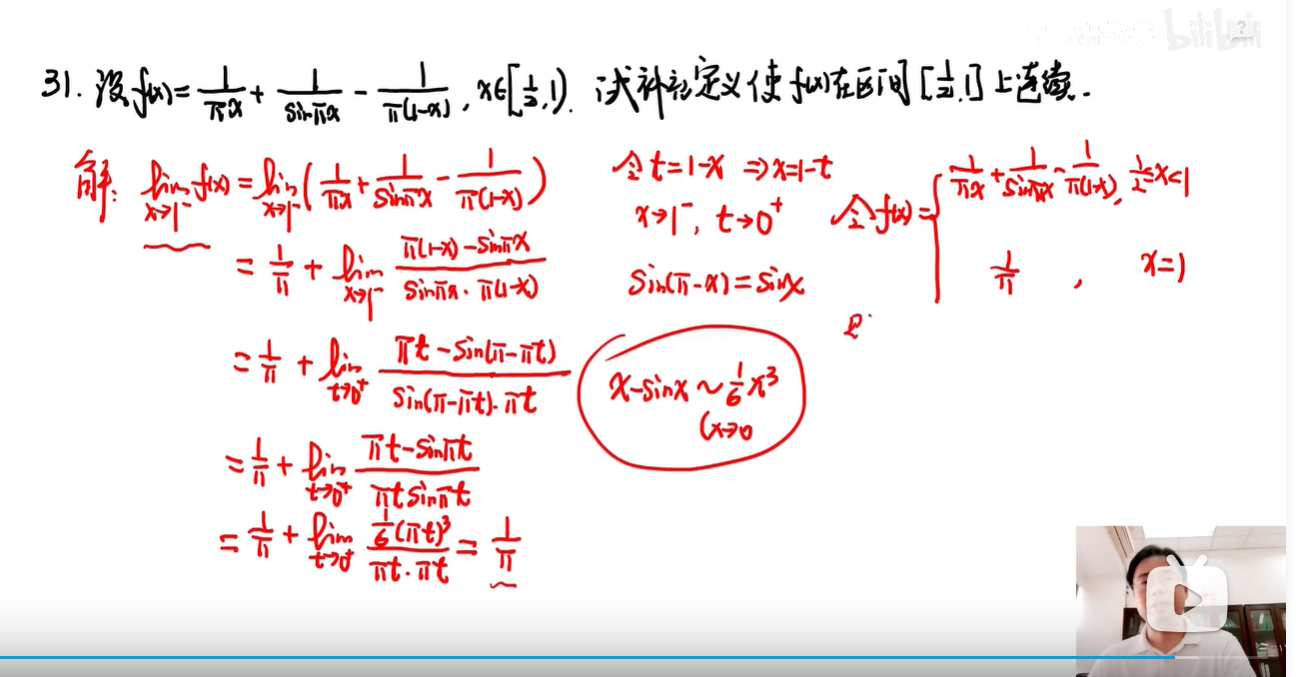 31. 设f(x)=1/(πx)+1/(sinπx)-1/(π(1-x)), x∈[1/2,1). 试补充定义使f(x)在区间[1/2,1]上连续.
解: lim_{x→1⁻} f(x)=lim_{x→1⁻}(1/(πx)+1/(sinπx)-1/(π(1-x)))
=1/π+lim_{x→1⁻} (π(1-x)-sinπx)/(sinπx·π(1-x))
=1/π+lim_{t→0⁺} (πt-sin(π-πt))/(sin(π-πt)·πt)
=1/π+lim_{t→0⁺} (πt-sinπt)/(πt sinπt)
=1/π+lim_{t→0⁺} (1/6(πt)³)/(πt·πt)=1/π
令t=1-x ⇒x=1-t
x→1⁻, t→0⁺
sin(π-x)=sinx
x-sinx~1/6x³
(x→0
令f(x)={1/(πx)+1/(sinπx)-1/(π(1-x)), 1/2≤x<1
1/π, x=1
bilibili
?